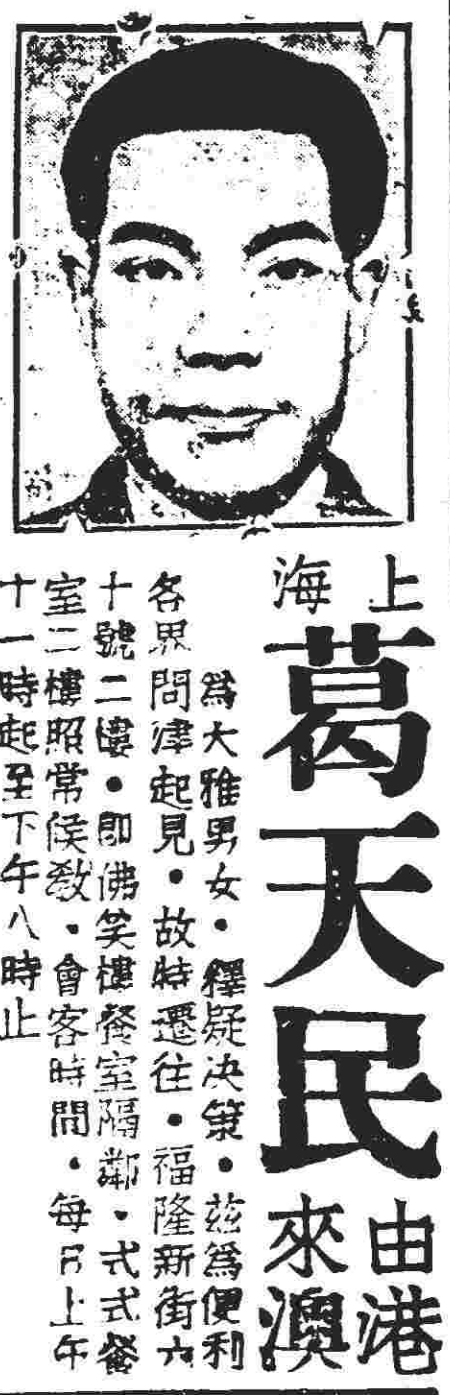 上海
葛天民
由港來澳
為大雅男女・釋疑决策・茲為便利
各界問津起見・故特遷往・福隆新街六
十號二樓・即佛笑樓餐室隔鄰・式式餐
室二樓照常侯教・會客時間・每日上午
十一時起至下午八時止